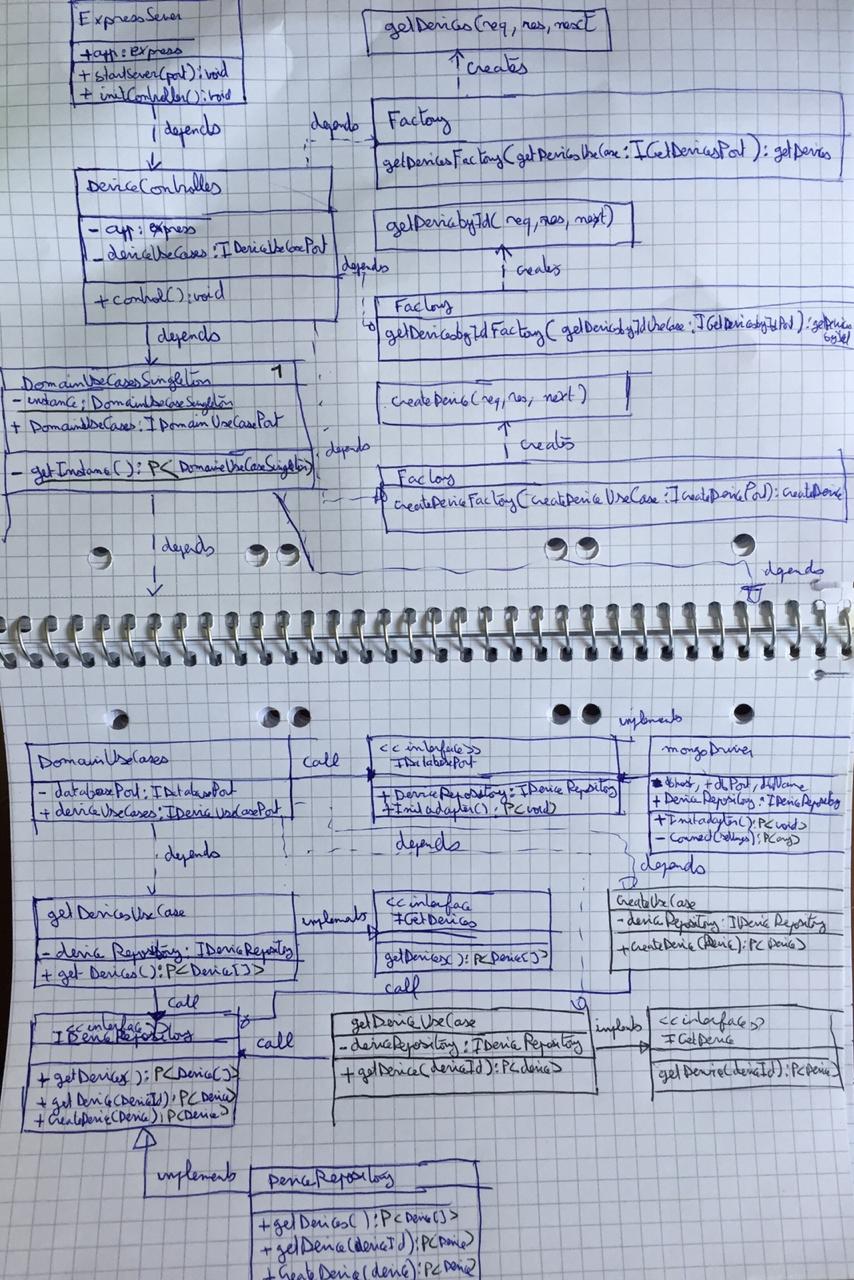 ExpressSever
+app: express
+startSever(port): void
+ initController(): void
depends
DeviceController
- app: express
- deviceUseCases: IDeviceUseCasePort
+ control(): void
depends
DomainUseCasesSingleton
1
- instance: DomainUseCaseSingleton
+ DomainUseCases: IDomainUseCasePort
- getInstance(): P<DomainUseCaseSingleton>
depends
getDevices(req, res, next)
creates
depends
Factory
getDevicesFactory(getDevicesUseCase: IGetDevicesPort): getDevices
getDevicebyId(req, res, next)
creates
depends
Factory
getDevicesbyIdFactory(getDevicebyIdUseCase: IGetDevicesbyIdPort):
createDevice(req, res, next)
creates
depends
Factory
createDeviceFactory(createDeviceUseCase: ICreateDevicePort): createDevice
depends
DomainUseCases
- databasePort: IDatabasePort
+ deviceUseCases: IDeviceUseCasePort
call
<<interface>>
IDatabasePort
+ DeviceRepository: IDeviceRepository
+Initadapter(): P<void>
implements
mongoDriver
+dbHost, +dbPort, dbName
+ DeviceRepository: IDeviceRepository
+Initadapter(): P<void>
- Connect(settings): P<any>
depends
depends
depends
getDevicesUseCase
- device Repository: IDeviceRepository
+ get Devices(): P<Device[]>
implements
<<interface
IGetDevices
getDevices(): P<Device[]>
createUseCase
- device Repository: IDevice Repository
+createDevice(Device): P<Device>
call
call
<<interface>>
IDeviceRepository
+ getDevices(): P<Device[]>
+ getDevice(DeviceId): P<Device>
+createDevice(Device): P<Device>
call
getDeviceUseCase
- deviceRepository: IDeviceRepository
+ getDevice(deviceId): P<device>
implemts
<<interfaces>
IGetDevice
getDevice(deviceId): P<Device>
implements
DeviceRepository
+ getDevices(): P<Device[]>
+ getDevice(deviceId): P<Device>
+ Create Device(device): P<Device>